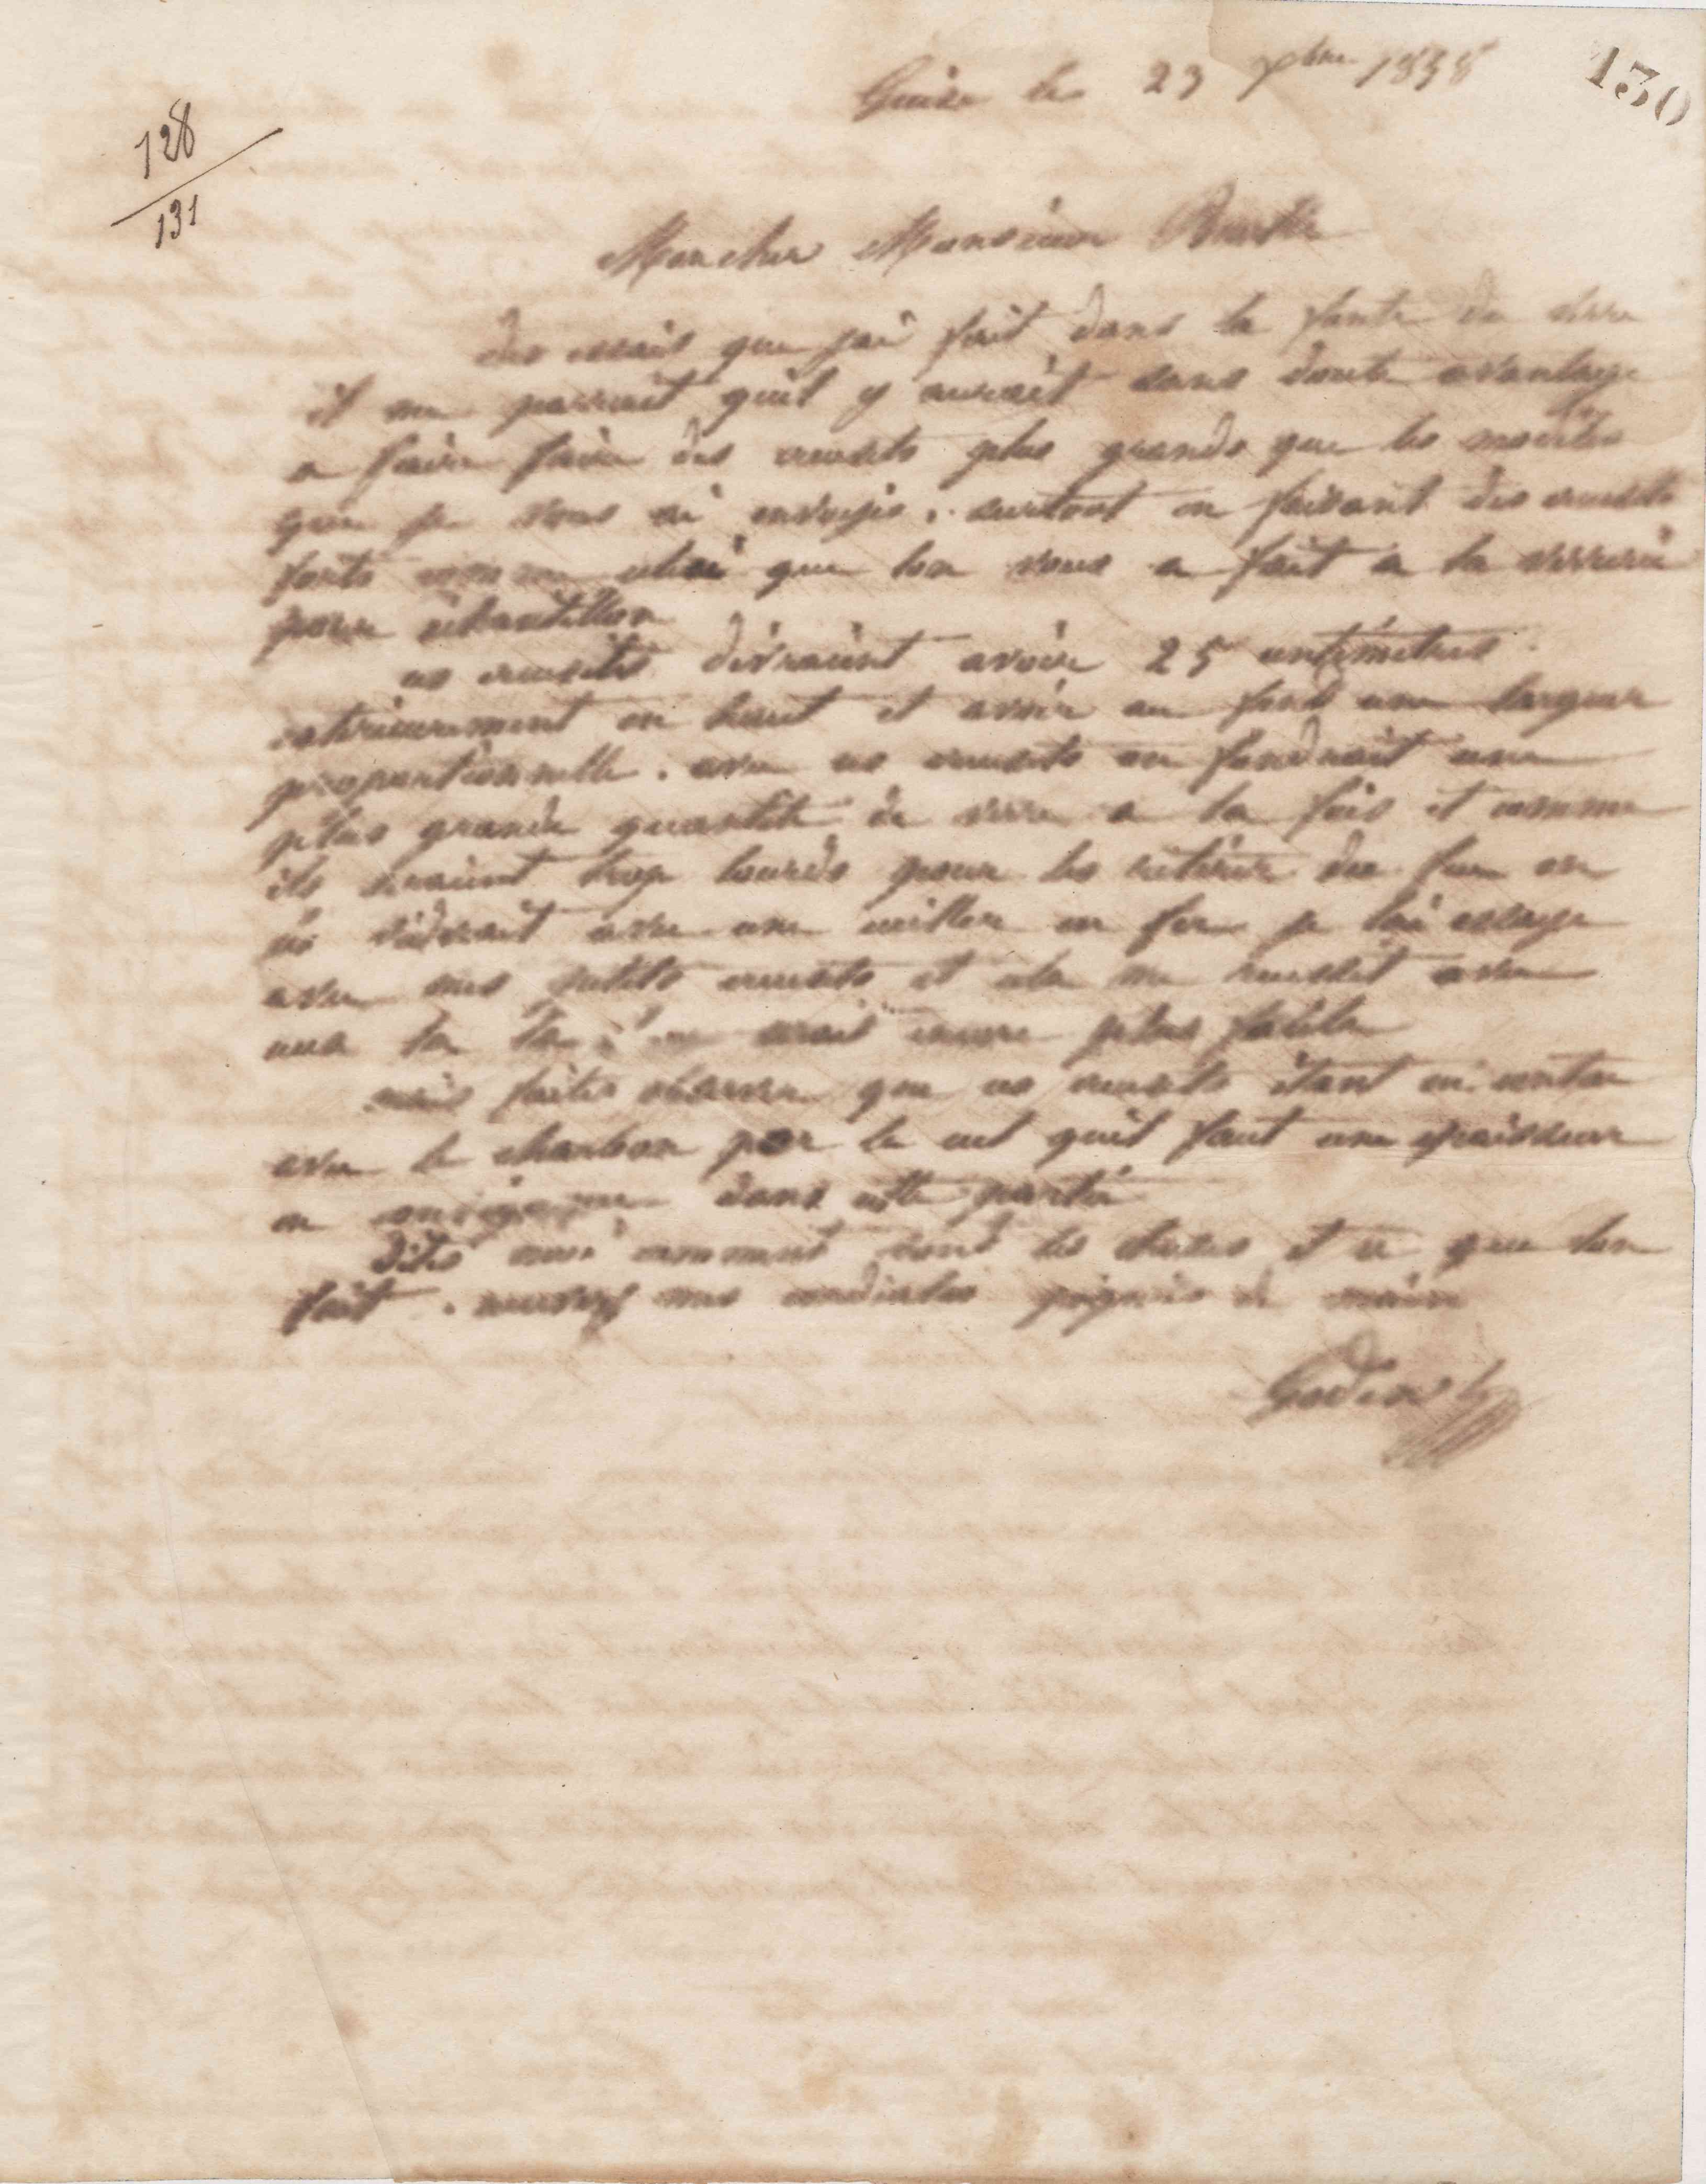 130
Guise le 23 7bre 1858
128
131
Mon cher Monsieur
des essais que jai fait dans la fonte du verre
il me parrait quil y aurait sans doute avantage
a faire faire des creusets plus grands que les modeles
que je vous ai envoyés. surtout en faisant des creusets
forts comme celui que lon vous a fait a la verrerie
pour échantillon
ces creusets devraient avoir 25 centimètres
exterieurement en haut et avoir au fond une largeur
proportionnelle. avec ces creusets on fondrait une
plus grande quantité de verre a la fois et comme
ils seraient trop lourds pour les retirer du feu on
les viderait avec une cuiller en fer je lai essayé
avec mes petits creusets et cela me reussit avec
ceux la serait encore plus facile
mais faites observer que ces creusets étant en contact
avec le charbon par le cul quil faut une epaisseur
en dans cette partie
dites moi comment sont les choses et ce que lon
fait. recevez mes cordiales poignées de main
Godin